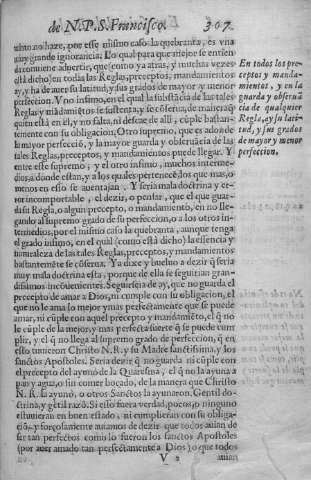 de N. P. S. Francisco. 307.
uino no haze, por esse mismo caso la quebranta, es vna
muy grande ignorancia. Lo qual para que mejor se entien
da conuiene aduertir, que (como ya atras, y muchas vezes
està dicho) en todas las Reglas, preceptos, mandamientos
ay, y ha de auer su latitud, y sus grados de mayor y menor
perfeccion. Vno infimo, en el qual la substãcia de las tales
Reglas y mãdamiẽtos se sustenta, y se cõserua, de manera q̃
quiẽ està en el, y no falta, ni desçae de alli, cũple bastan-
temente con su obligacion. Otro supremo, que es adonde
la mayor perfecciõ, y la mayor guarda y obseruãcia de las
tales Reglas, preceptos, y mandamientos puede llegar. Y
entre esse supremo, y el otro infimo, muchos interme-
dios, a donde estan, y a los quales pertenecẽ los que mas, o
menos en esso se auentajan. Y seria mala doctrina y er-
ror incomportable, el dezir, o pensar, que el que guar-
dasse Regla, o algun precepto, o mandamiento, en no lle-
gando al supremo grado de su perfeccion, o a los otros in-
termedios, por el mismo caso la quebranta, aunque tenga
el grado infimo, en el qual (como està dicho) la essencia y
naturaleza de las tales Reglas, preceptos, y mandamientos
bastantemẽte se cõserua. Ya dixe y bueluo a dezir q̃ seria
muy mala doctrina esta, porque de ella se seguirian gran-
dissimos incõuenientes. Seguirseia de ay, que no guarda el
precepto de amar a Dios, ni cumple con su obligacion, el
que no le ama lo mejor y mas perfectamente que se puede
amar, ni cũple con aquel precepto y mandamiẽto, el q̃ no
le cũple de la mejor, y mas perfecta suerte q̃ se puede cum
plir, y el q̃ no llega al supremo grado de perfeccion, q̃ en
esso tuuieron Christo N. R. y su Madre sanctissima, y los
sanctos Apostoles. Seria dezir q̃ no guarda ni cũple con
el precepto del ayuno de la Quaresma, el q̃ no la ayuna a
pan y agua, o sin comer bocado, de la manera que Christo
N. R. la ayunò, o otros Sanctos la ayunaron. Gentil do-
ctrina, y gẽtil razõ. Si esso fuera verdad, pocos, o ninguno
estuuieran en buen estado, ni cumplieran con su obliga-
ciõ, y forçosamente auiamos de dezir que todos auian de
ser tan perfectos como lo fueron los sanctos Apostoles
(por auer amado tan perfectamente a Dios) o que todos
V 2 auian
En todos los pre-
ceptos y manda-
mientos, y en la
guarda y obseruã
cia de qualquier
Regla, ay su lati-
tud, y sus grados
de mayor y menor
perfeccion.